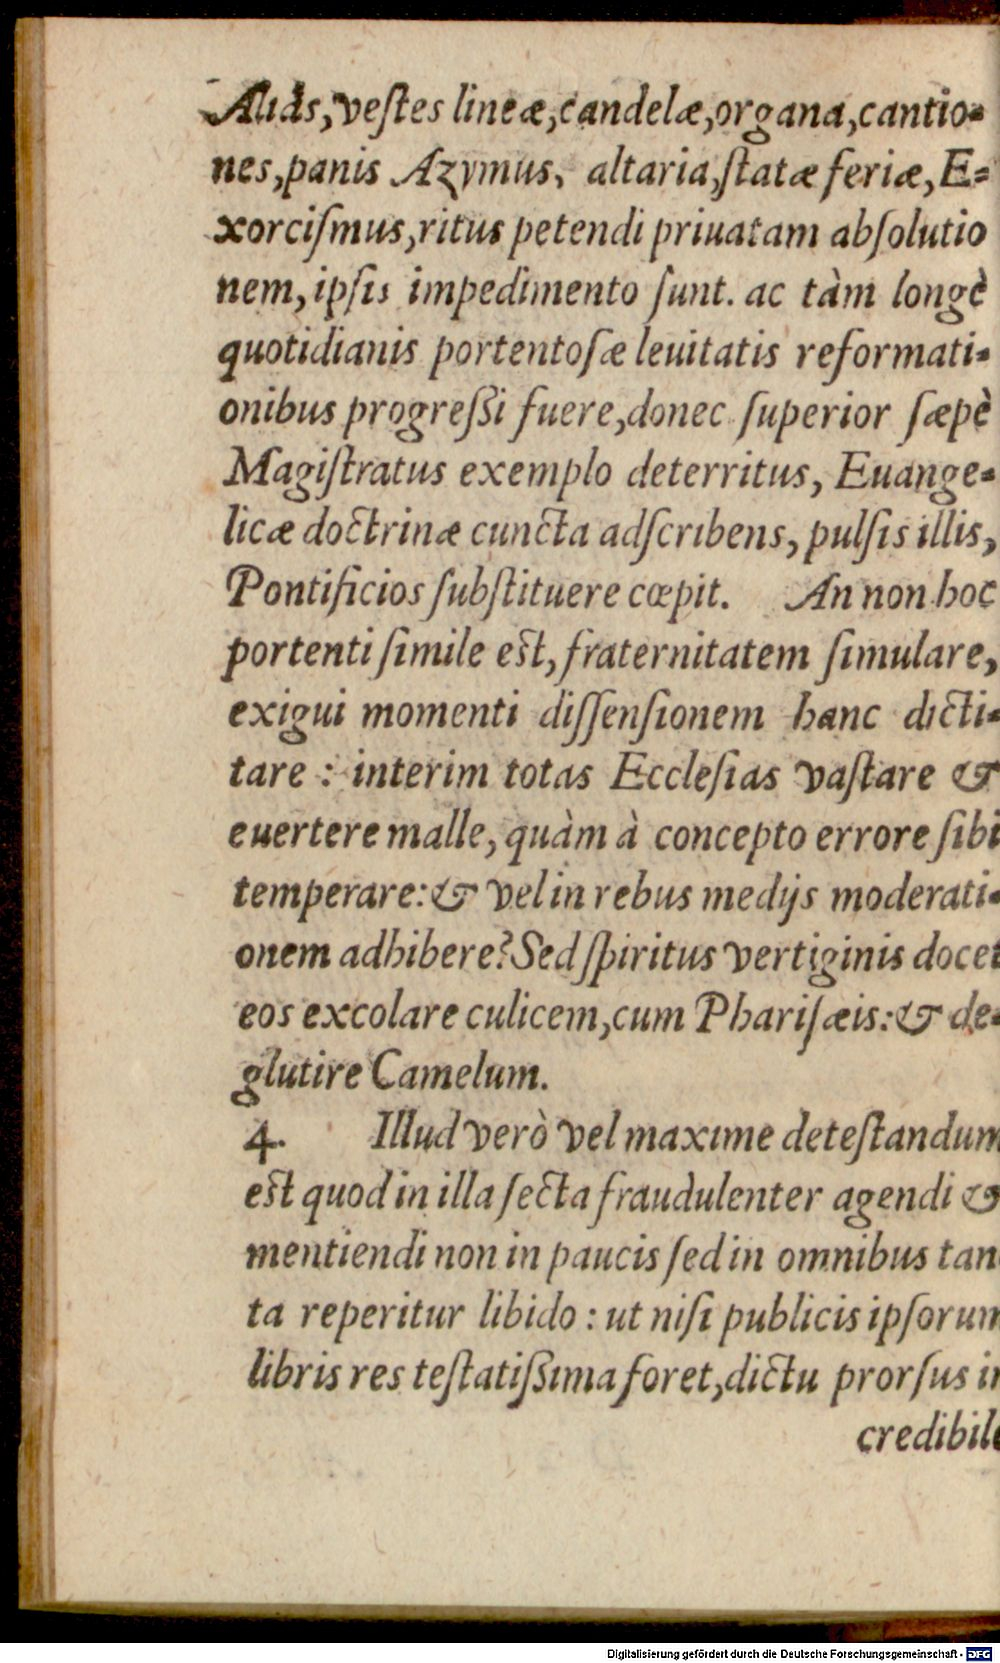 Aliàs, vestes lineæ, candelæ, organa, cantio-
nes, panis Azymus, altaria, statæ feriæ, E-
xorcismus, ritus petendi priuatam absolutio
nem, ipsis impedimento sunt. ac tàm longè
quotidianis portentosæ leuitatis reformati-
onibus progreßi fuere, donec superior sæpè
Magistratus exemplo deterritus, Euange-
licæ doctrinæ cuncta adscribens, pulsis illis,
Pontificios substituere cœpit. An non hoc
portenti simile est, fraternitatem simulare,
exigui momenti dissensionem hanc dicti-
tare : interim totas Ecclesias vastare &
euertere malle, quàm à concepto errore sibi
temperare: & vel in rebus medijs moderati-
onem adhibere? Sed spiritus vertiginis docet
eos excolare culicem, cum Pharisæis: & de-
glutire Camelum.
4. Illud verò vel maxime detestandum
est quod in illa secta fraudulenter agendi &
mentiendi non in paucis sed in omnibus tan
ta reperitur libido : ut nisi publicis ipsorum
libris res testatißima foret, dictu prorsus in
credibile
Digitalisierung gefördert durch die Deutsche Forschungsgemeinschaft - DFG